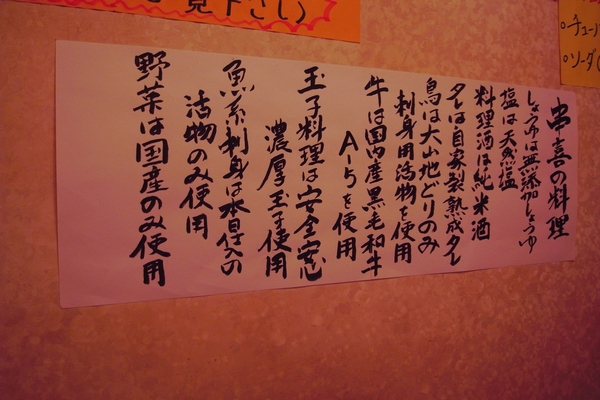 見下さい
串喜の料理
しょうゆは無添加しょうゆ
塩は天然塩
料理酒は純米酒
タレは自家製熟成タレ
鳥は大山地どりのみ
刺身用活物を使用
牛は国内産黒毛和牛
A-5を使用
玉子料理は安全安心
濃厚玉子使用
魚系刺身は本日仕入の
活物のみ使用
野菜は国産のみ使用
○チュー
○ソーダ